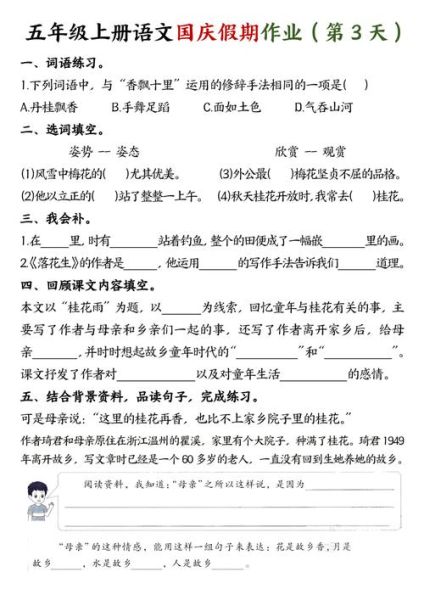 五年级上册语文国庆假期作业（第3天）
一、词语练习。
1.下列词语中，与“香飘十里”运用的修辞手法相同的一项是(　　)
A.丹桂飘香　　B.手舞足蹈　　C.面如土色　　D.气吞山河
二、选词填空。
姿势 -- 姿态　　　　欣赏 -- 观赏
(1)风雪中梅花的(　　)尤其优美。　(3)外公最(　　)梅花坚贞不屈的品格。
(2)他以立正的(　　)站了整整一上午。　(4)秋天桂花开放时,我常去(　　)桂花。
三、我会补。
1.在____里,时有______站着钓鱼,整个的田便成了一幅嵌______里的画。
2.《落花生》的作者是_____,他运用______的写作手法告诉我们_____道理。
四、回顾课文内容填空。
本文以“桂花雨”为题，以______为线索，回忆童年与桂花有关的事，主
要写了作者与母亲和乡亲们一起的事，还写了作者离开家乡后，给母
亲_______,并时时想起故乡童年时代的“__________”和“__________”。
课文抒发了作者对____________以及对童年生活__________的感情。
五、结合背景资料，品读句子，完成练习。
可是母亲说：“这里的桂花再香，也比不上家乡院子里的桂花。”
作者琦君和母亲原住在浙江温州的瞿溪，家里有个大院子，种满了桂花。琦君1949
年离开故乡，写文章时已经是一个60多岁的老人，一直没有回到生她养她的故乡。
阅读资料，我知道：“母亲”之所以这样说，是因为____________
“母亲”的这种情感，能用这样一组句子来表达：花是故乡香,月是
故乡_____，水是故乡_____，人是故乡_____。